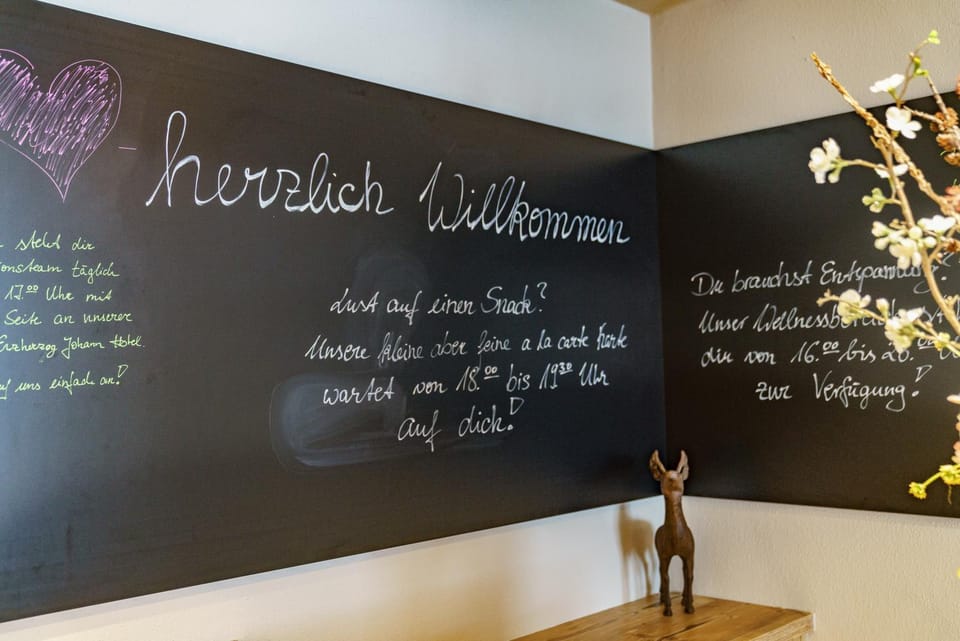 herzlich Willkommen
steht dir
täglich
17.00 Uhr mit
Seite an unserer
Erzherzog Johann Hotel.
uns einfach an!
Lust auf einen Snack?
Unsere kleine aber feine a la carte Karte
wartet von 18.00 bis 19.30 Uhr
auf dich!
Du brauchst Entspannung?
Unser
dir von 16.00 bis 20.00
zur Verfügung!